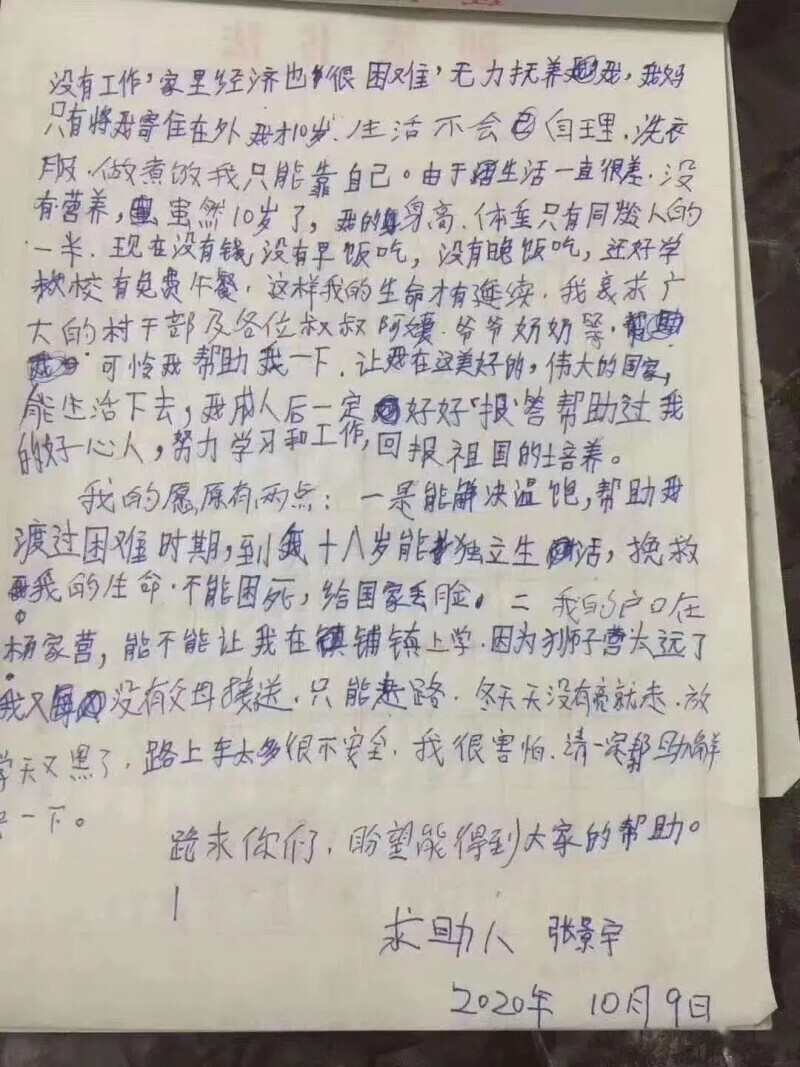 没有工作，家里经济也很困难，无力抚养我，我妈
只有将我寄住在外 我才10岁．生活不会自理．洗衣
服．做煮饭我只能靠自己。由于生活一直很差．没
有营养，虽然10岁了，我的身高．体重只有同龄人的
一半．现在没有钱，没有早饭吃，没有晚饭吃，还好学
校有免费午餐．这样我的生命才有延续．我哀求广
大的村干部及各位叔叔阿姨．爷爷奶奶等．
可怜我帮助我一下．让我在这美好的，伟大的国家，
能生活下去，我成人后一定好好"报"答帮助过我
的好心人，努力学习和工作，回报祖国的培养。
我的愿原有两点：一是能解决温饱，帮助我
渡过困难时期，到我十八岁能独立生活，挽救
我的生命．不能困死，给国家丢脸。二 我的户口在
杨家营，能不能让我在镇铺镇上学．因为狮子营太远了
我又没有父母接送．只能走路．冬天天没有亮就走．放
学天又黑了．路上车太多很不安全．我很害怕．请一定帮助解
一下。
跪求你们，盼望能得到大家的帮助。
求助人 张景宇
2020年 10月9日